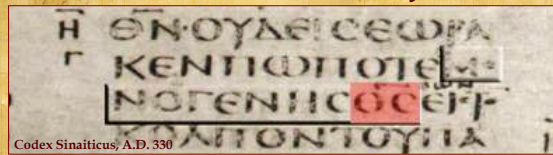 Η ΘΝ·ΟΥΔΕΙϹΕΩΡΑ
Γ ΚΕΝΠΩΠΟΤΕΜΟ
ΝΟΓΕΝΗϹΘϹΕΙϹ
ΚΟΛΠΟΝΤΟΥΠΑ
Codex Sinaiticus, A.D. 330